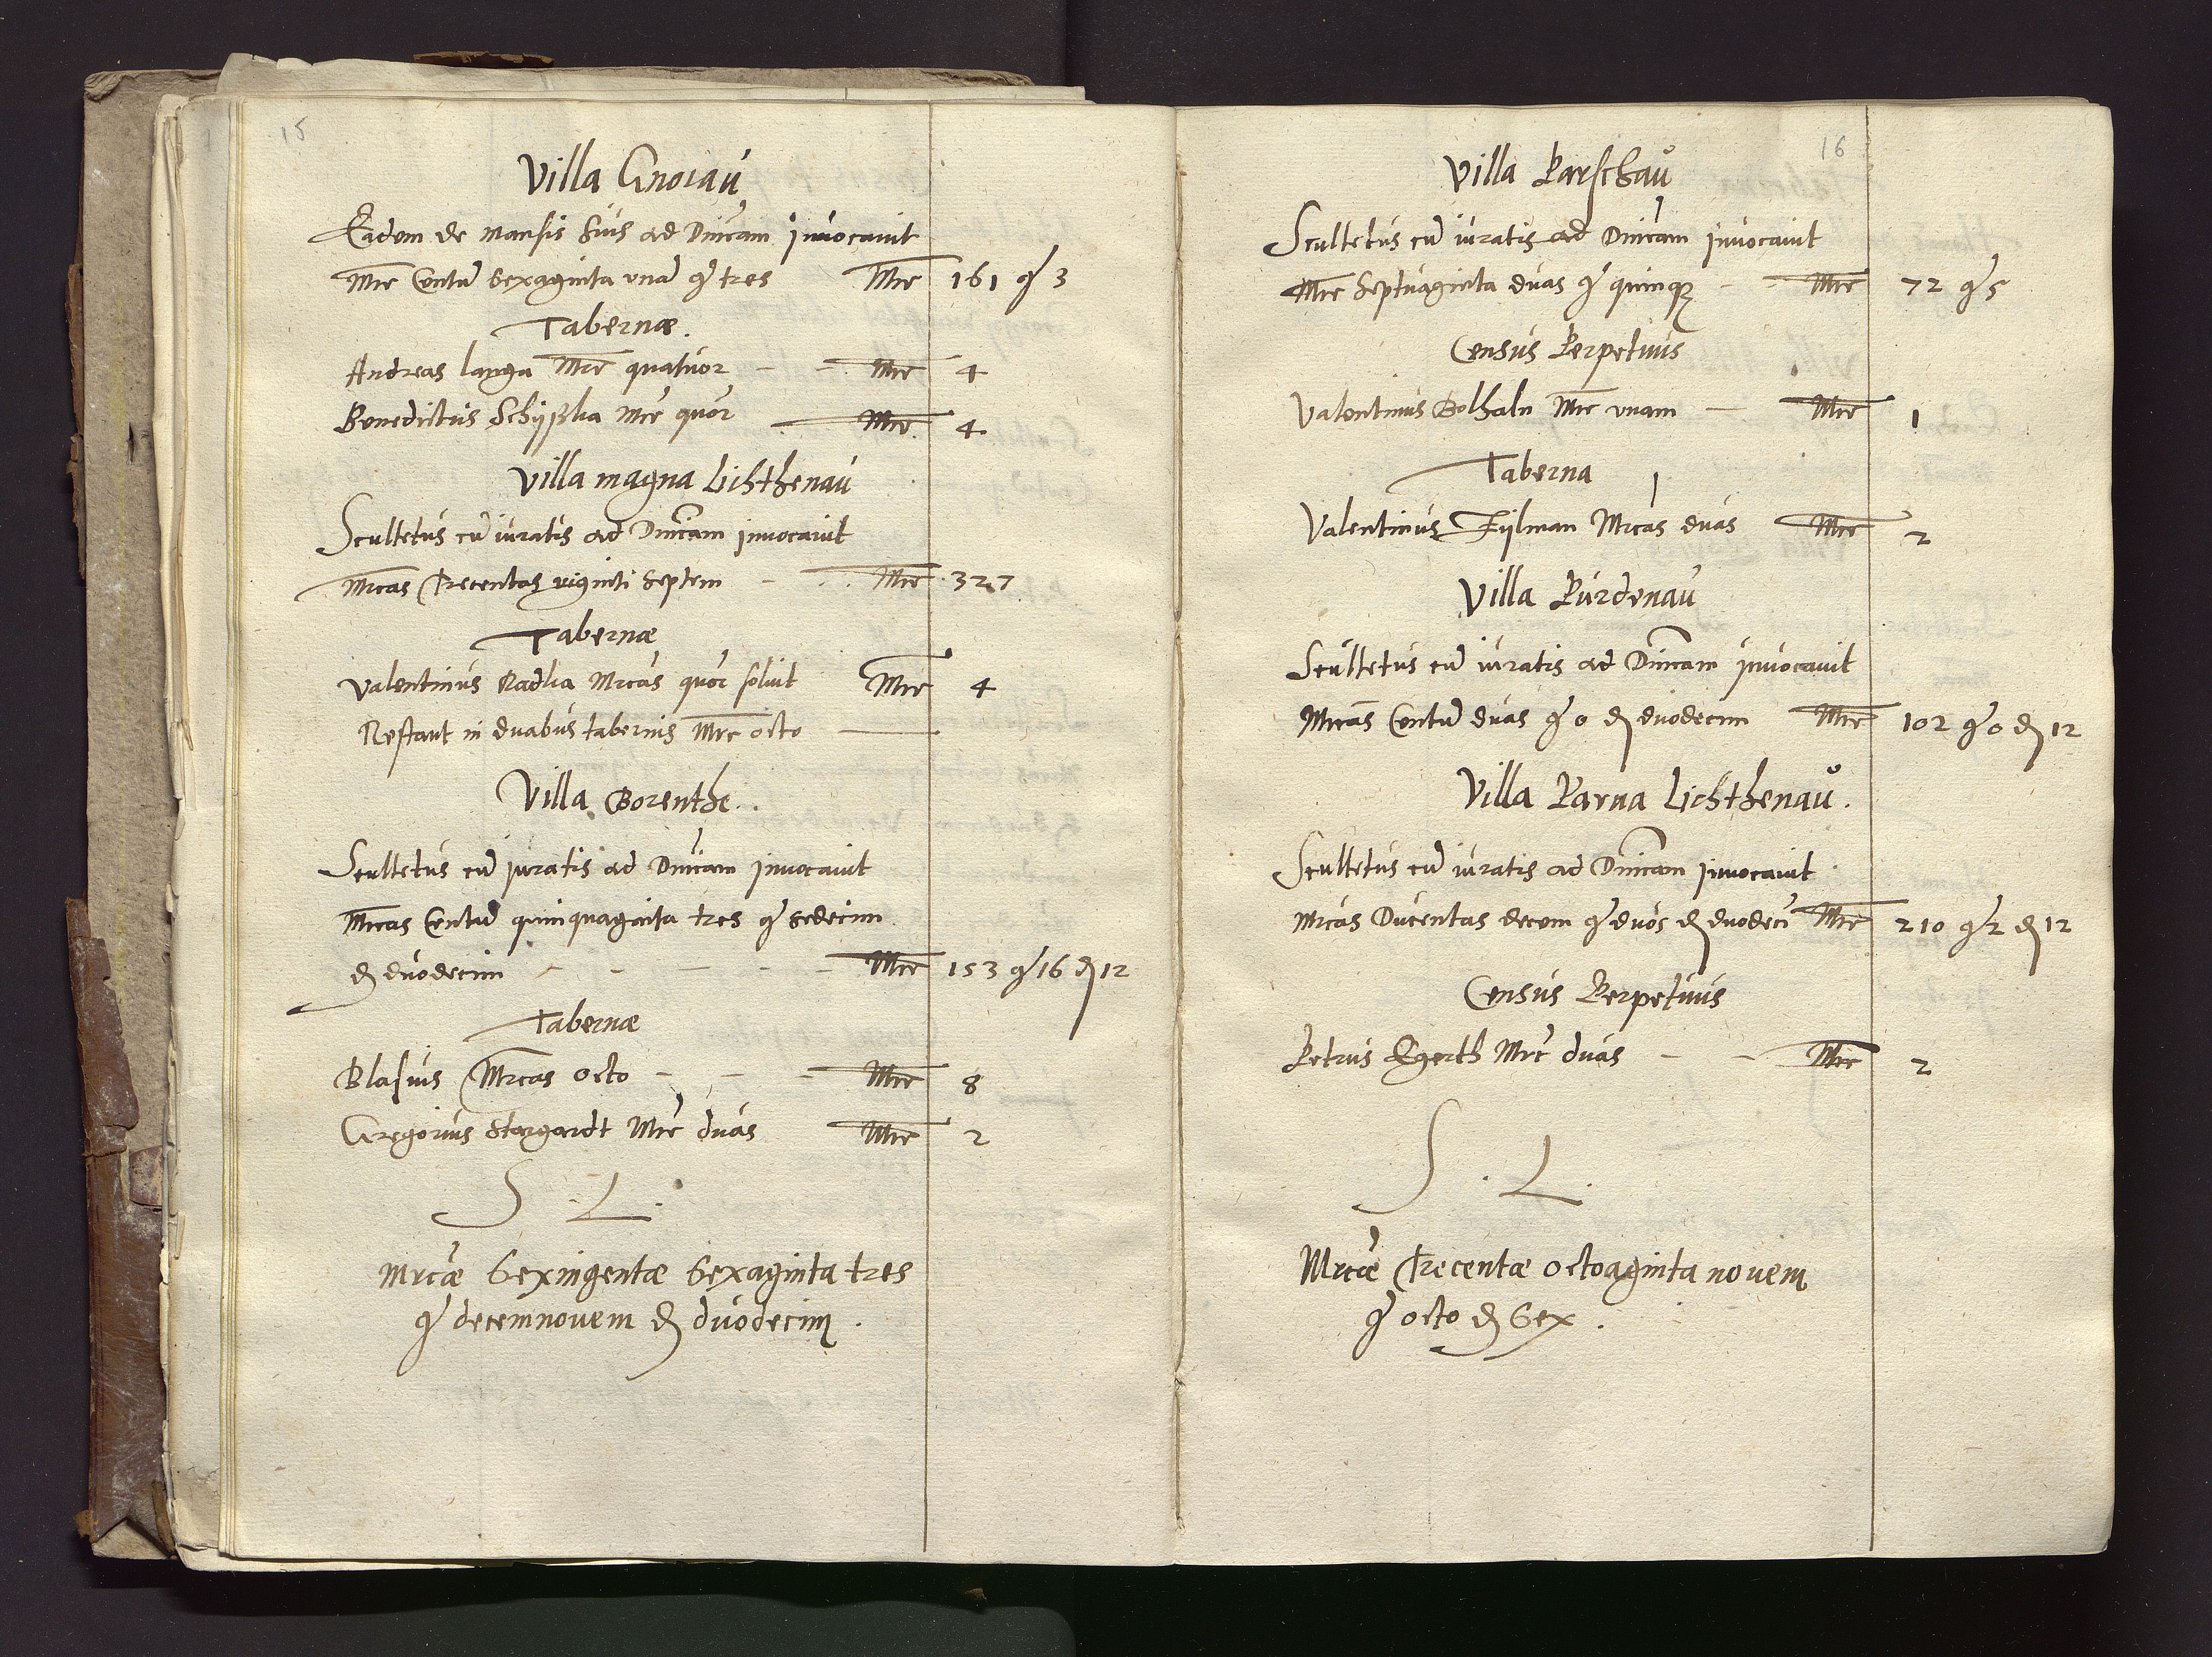 15
Villa Gnoiau
Eadem de mansis suis ad Dnicam Inuocauit
Mrc Centu Sexaginta vna g tres Mrc 161 g 3
Tabernæ.
Andreas langa Mrc quatuor - - Mrc 4
Benedictus Schijßka Mrc quor Mrc 4
Villa magna Lichthenau
Scultetus cu iuratis ad Dnicam inuocauit
Mrcas Trecentas viginti septem - Mrc 327
Tabernæ
Valentinus Radka Mrcas quor soluit Mrc 4
Restant in duabus tabernis Mrc octo
Villa Borenthe.
Scultetus cu iuratis ad Dnicam inuocauit
Mrcas Centu quinquaginta tres g sedecim
₰ duodecim - - - - - Mrc 153 g 16 ₰ 12
Tabernæ
Blasius Mrcas octo - - - Mrc 8
Gregorius Stargardt Mrc duas Mrc 2
S. L.
Mrcæ Sexingentæ Sexaginta tres
g decemnouem ₰ duodecim.
16
Villa Parschau
Scultetus cu iuratis ad Dnicam inuocauit
Mrc Septuaginta duas g quinqz - - Mrc 72 g 5
Census Perpetuus
Valentinus Bolhaln Mrc vnam - Mrc 1
Taberna
Valentinus Tijlman Mrcas duas Mrc 2
Villa Purdenau
Scultetus cu iuratis ad Dnicam inuocauit
Mrcas Centu duas g 0 ₰ duodecim Mrc 102 g 0 ₰ 12
Villa Parua Lichthenau.
Scultetus cu iuratis ad Dnicam inuocauit
Mrcas Ducentas decem g duos ₰ duodeci Mrc 210 g 2 ₰ 12
Census Perpetuus
Petrus Egerth Mrc duas - - Mrc 2
S. L.
Mrcæ Trecentæ octoaginta nouem
g octo ₰ Sex.